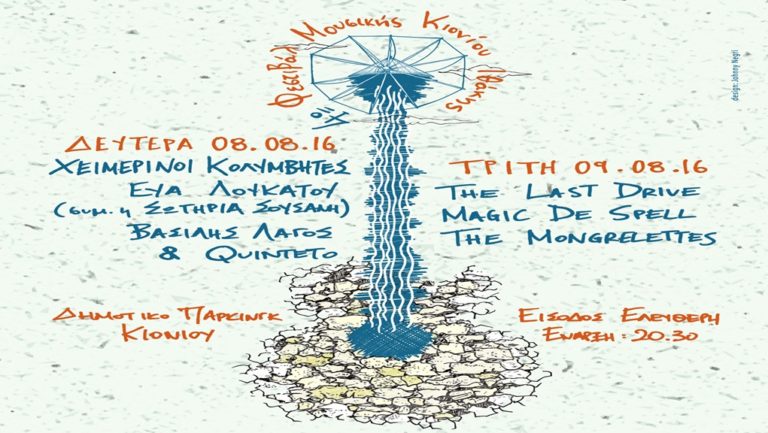 Φεστιβάλ Μουσικής Κιονίου Ιθάκης
4ο
ΔΕΥΤΕΡΑ 08.08.16
ΧΕΙΜΕΡΙΝΟΙ ΚΟΛΥΜΒΗΤΕΣ
ΕΥΑ ΛΟΥΚΑΤΟΥ
(συμ. η ΣΩΤΗΡΙΑ ΣΟΥΣΑΜΗ)
ΒΑΣΙΛΗΣ ΛΑΓΟΣ
& QUINTETO
ΤΡΙΤΗ 09.08.16
THE LAST DRIVE
MAGIC DE SPELL
THE MONGRELETTES
ΔΗΜΟΤΙΚΟ ΠΑΡΚΙΝΓΚ
ΚΙΟΝΙΟΥ
ΕΙΣΟΔΟΣ ΕΛΕΥΘΕΡΗ
ΕΝΑΡΞΗ: 20.30
design: Johnny Negri